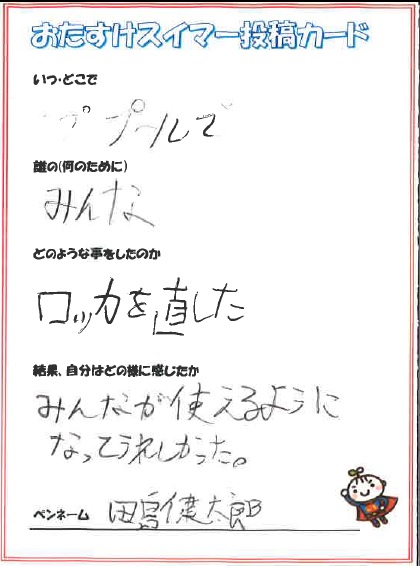 おたすけスイマー投稿カード
いつ・どこで
プールで
誰の(何のために)
みんな
どのような事をしたのか
ロッカを直した
結果、自分はどの様に感じたか
みんなが使えるように
なってうれしかった。
ペンネーム 田島健太郎